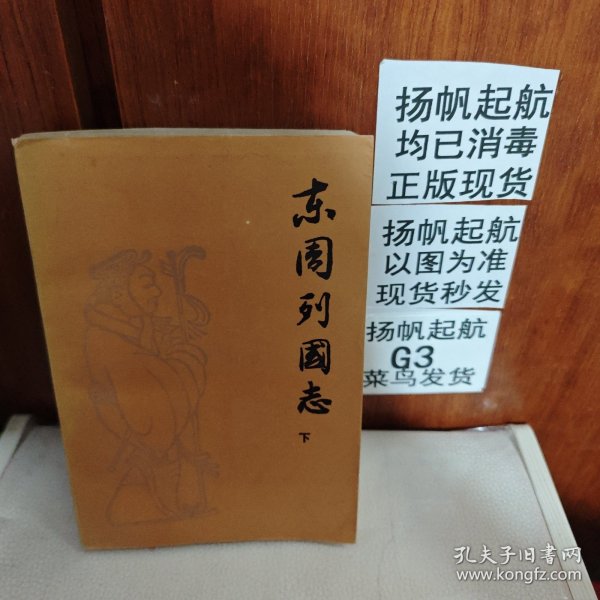 东周列國志
下
扬帆起航
均已消毒
正版现货
扬帆起航
以图为准
现货秒发
扬帆起航
G3
菜鸟发货
孔夫子旧书网
www.kongfz.com